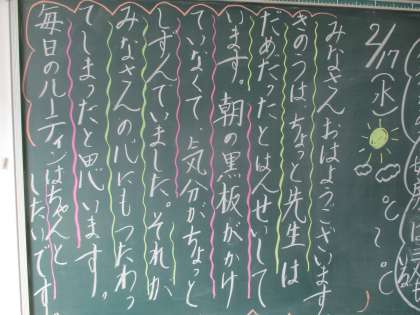 2/17(水)
℃〜℃
みなさん おはようございます
きのうは、ちょっと先生は
だめだったとはんせいして
います。朝の黒板がかけ
ていなくて、気分がちょっと
しずんでいました。それが
みなさんの心にもつたわっ
てしまったと思います。
毎日のルーティンはちゃんと
したいです。